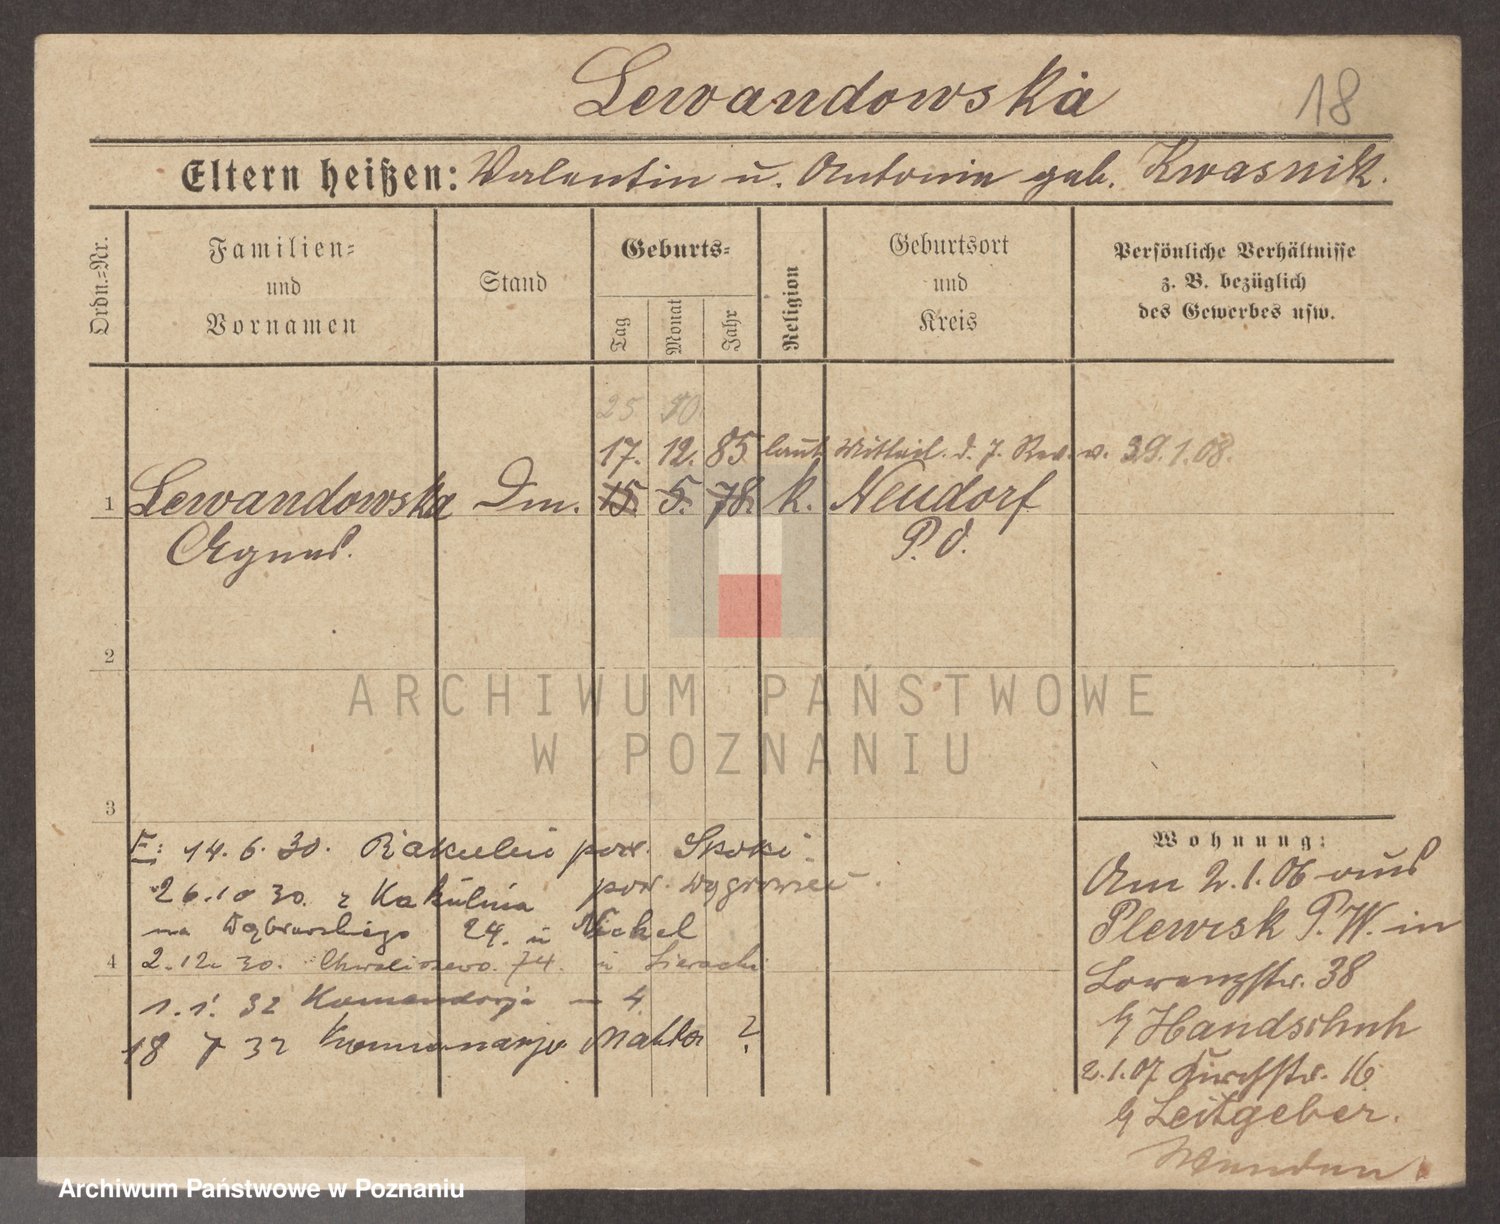 Lewandowska
18
Eltern heißen: Valentin u. Antonie geb. Kwasnik.
Ordn.-Nr.
Familien-
und
Vornamen
Stand
Geburts-
Tag
Monat
Jahr
Religion
Geburtsort
und
Kreis
Persönliche Verhältnisse
z. B. bezüglich
des Gewerbes usw.
25 10.
17. 12. 85 laut Mitteil. d. 7. Rev. v. 29.1.08.
1 Lewandowska Dm. 15. 5. 78. k. Neudorf
Agnes. P. O.
2
ARCHIWUM PAŃSTWOWE
W POZNANIU
3
E: 14. 6. 30. pow. Skoki
26.10 30. z Kakulina pow. Wągrowiec.
na 24. u Nickel
4 2. 12. 30. Chwaliszewo. 74. u
1. 1. 32 Komandorja 4
18 7 32 matka ?
Wohnung:
Am 2.1.06 aus
Plewisk P.W. in
Lorenzstr. 38
b/ Handschuh
2.1.07 Kirchstr. 16
b/ Leitgeber.
Archiwum Państwowe w Poznaniu